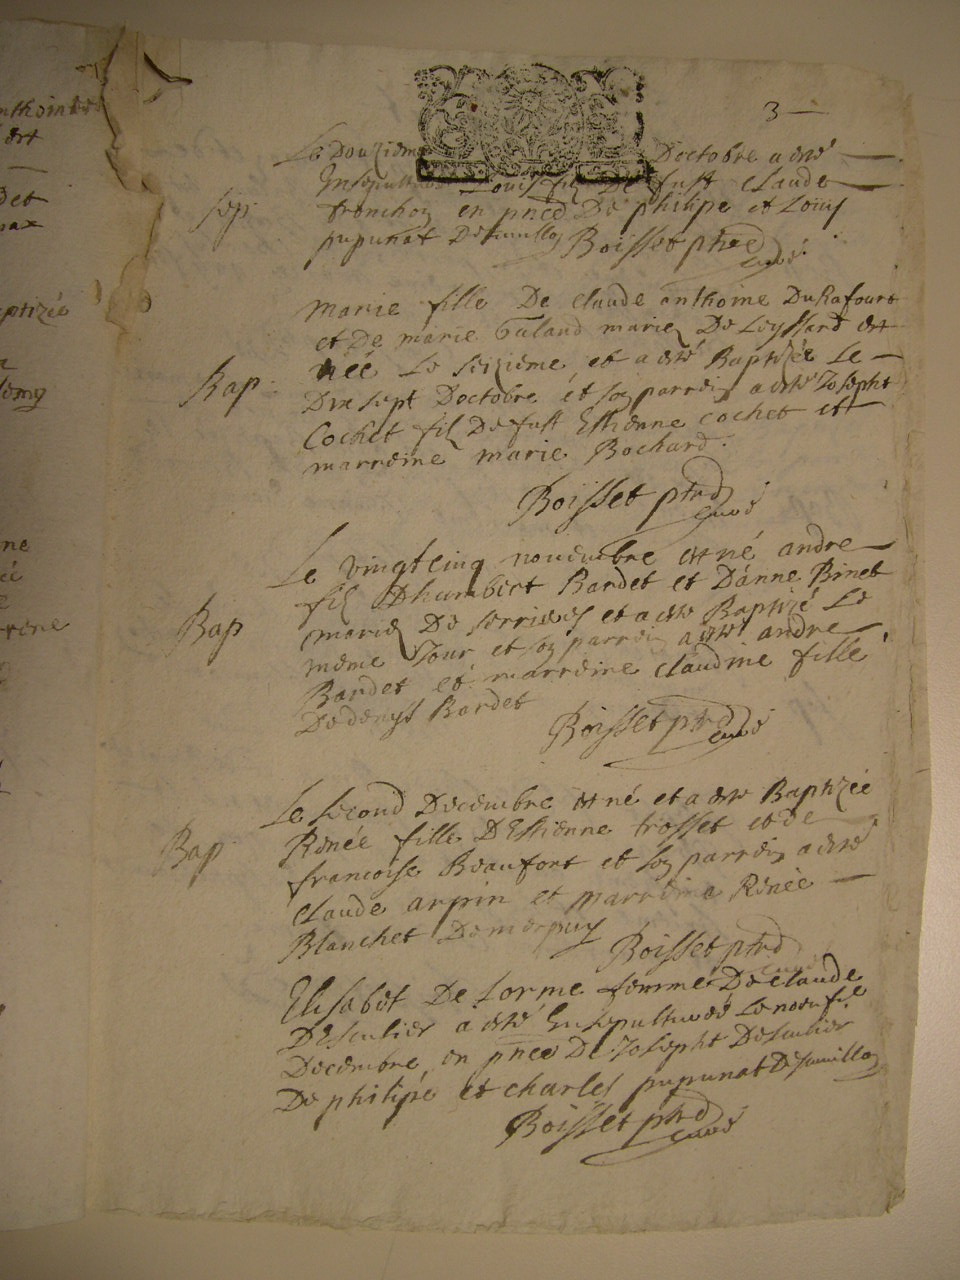 3
Le Douzieme Doctobre a esté
Ensepulturé Louis fils De fust claude
sep. tronchon en pnce De philipe et Louis
pupunat De Boisset ptre curé
Marie fille De claude anthoine Durafourt
et De marie Guland mariez De Leyssard est
née Le seizieme et a esté Baptizée Le
Bap. Dix sept Doctobre et son parrein a esté Josepht
Cochet fils De fust Estienne cochet et
marreine marie Bochard.
Boisset ptre curé
Le vingtcinq novembre est né andre
fils Dhumbert Bardet et Danne Binet
Bap mariez De serrieres et a esté Baptizé Le
meme Jour et son parrein a esté andre
Bardet et marreine claudine fille
De denyst Bardet
Boisset ptre curé
Le second Decembre est né et a esté Baptizée
Renée fille DEstienne trosset et de
Bap francoise Beaufort et son parrein a esté
claude arpin et marreine Renée
Blanchet Boisset ptre curé
Elisabet De Lorme femme De claude
Desculier a esté Ensepulturée Le neufie
Decembre en pnce De Josepht Desculier
De philipe et charles pupunat
Boisset ptre curé